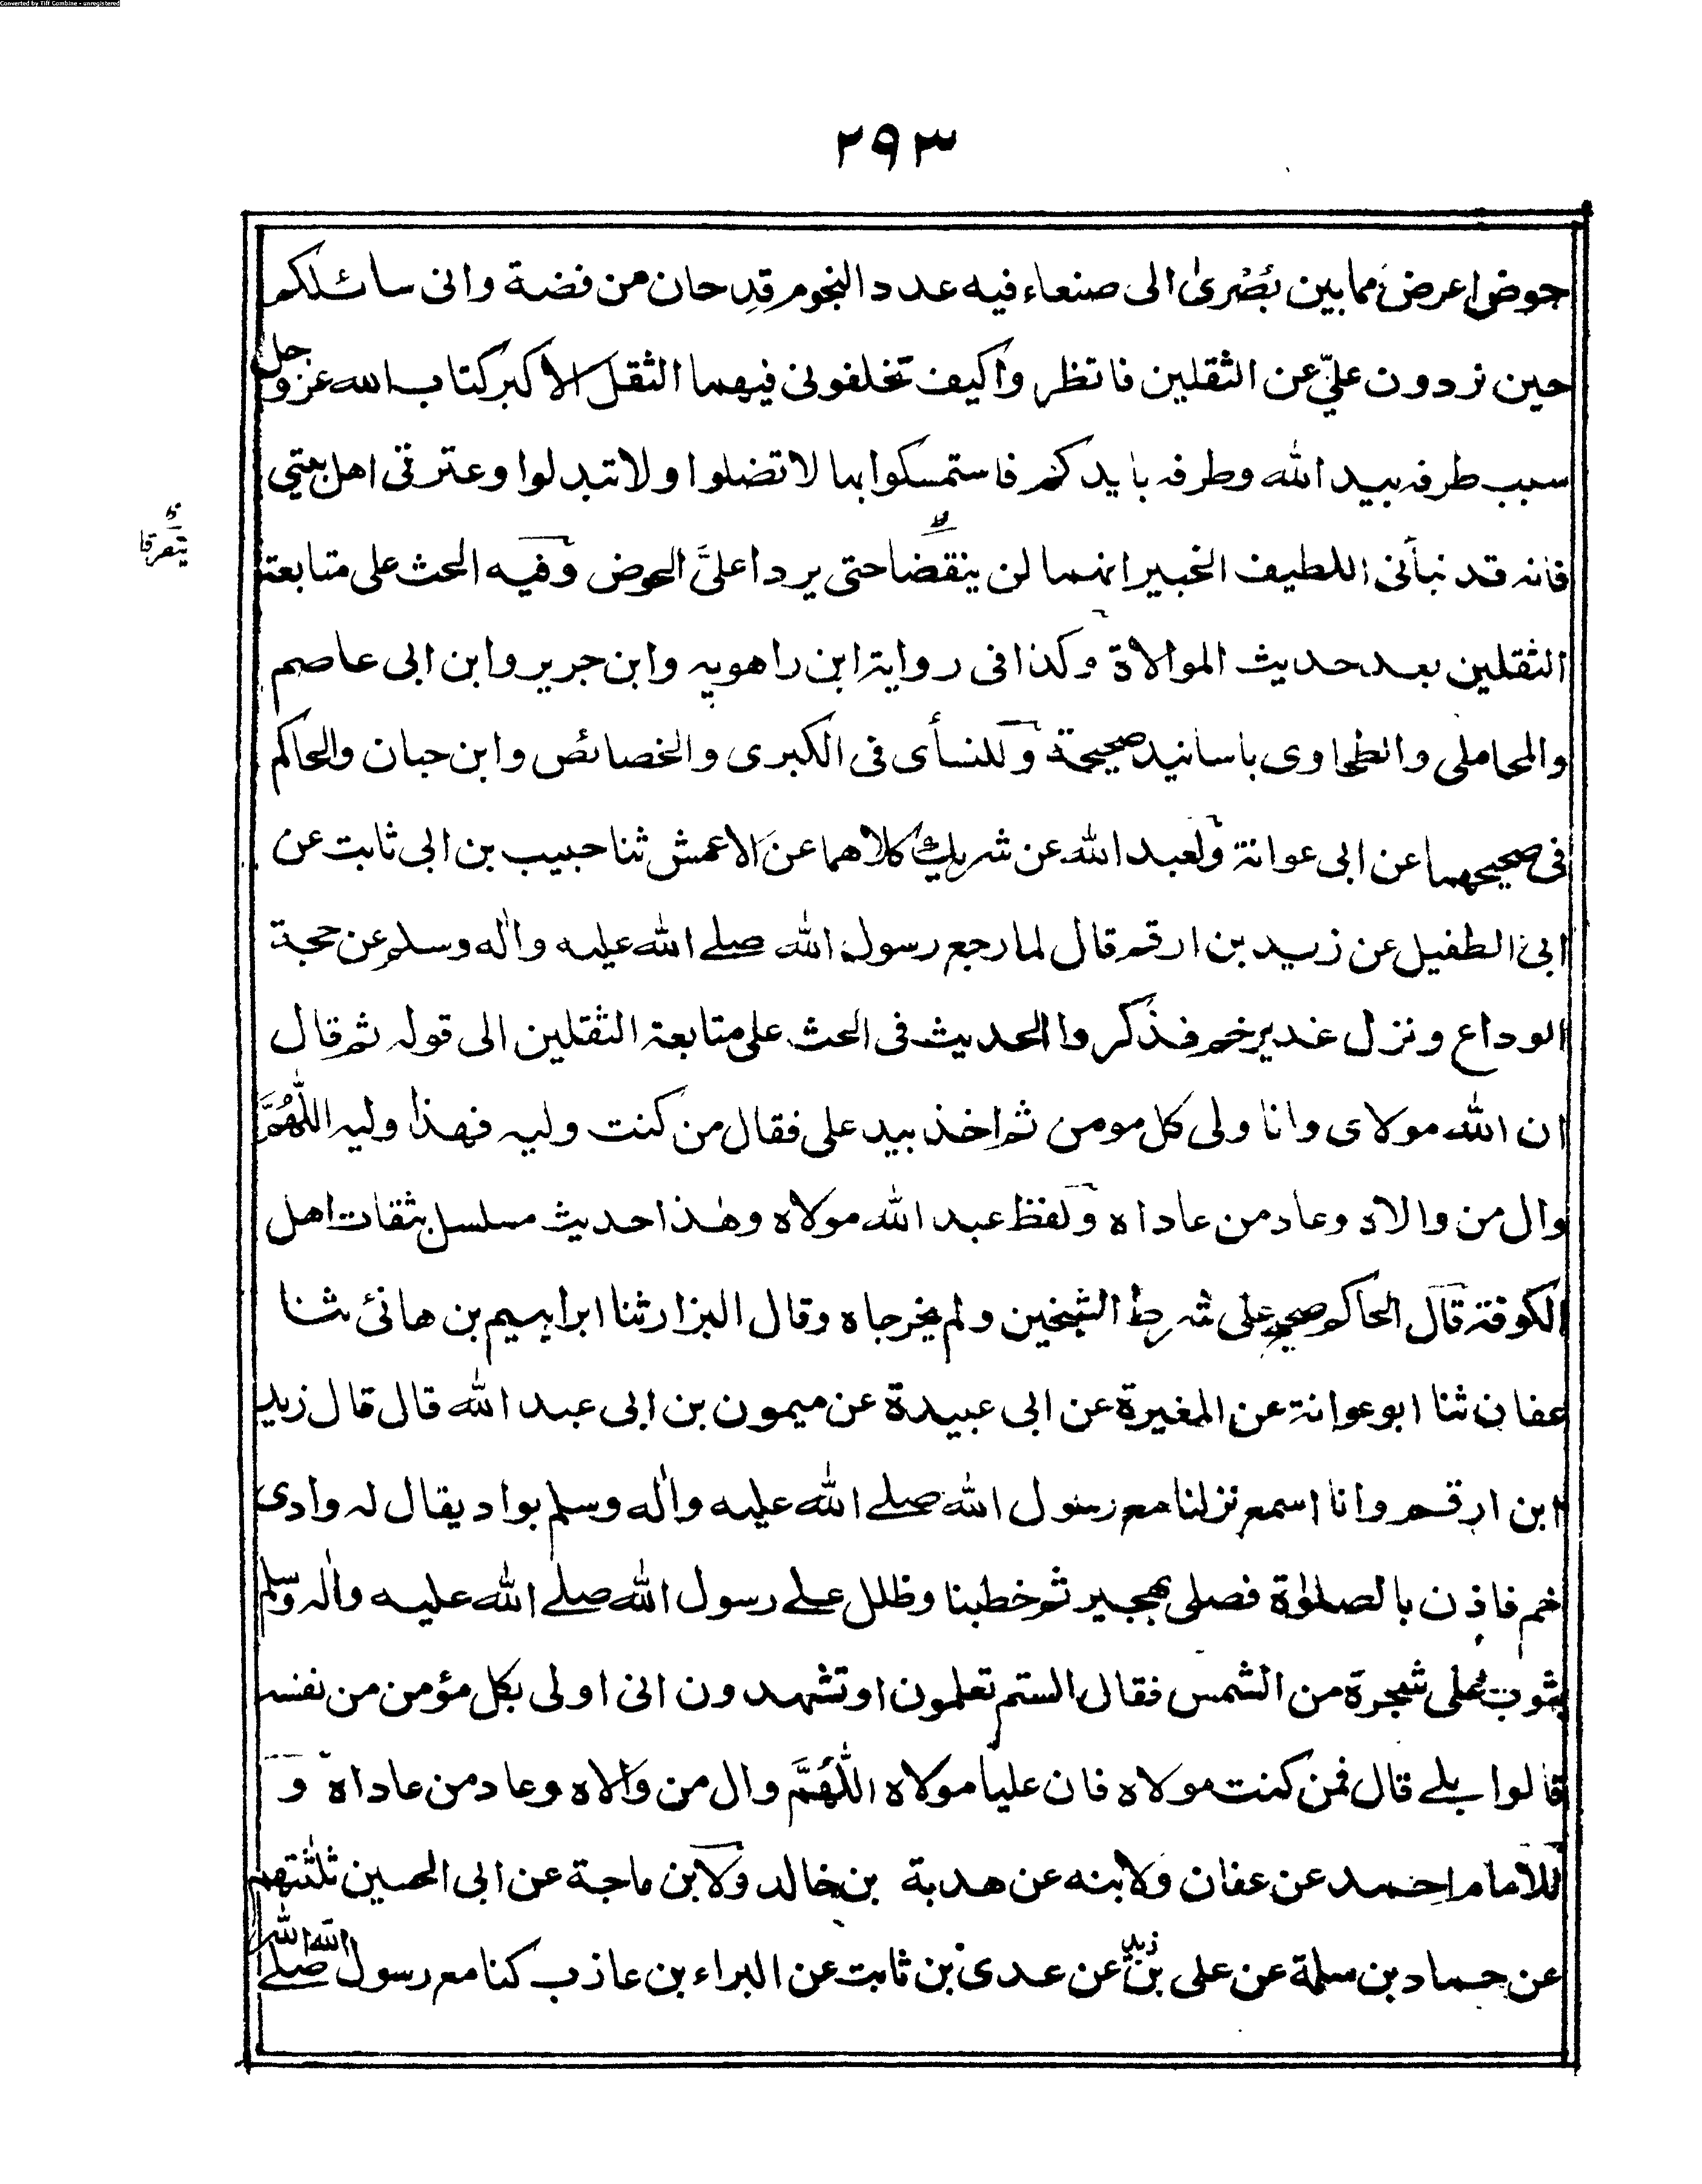 Converted by Tiff Combine - unregistered
٢٩٣
حوض اعرض مما بين بُصْرىٰ الى صنعاء فيه عدد النجوم قدحان من فضة وانى سائلكم
حين تردون علىّ عن الثقلين فانظروا كيف تخلفونى فيهما الثقل الاكبر كتاب الله عزوجل
سبب طرفه بيد الله وطرفه بايدكم فاستمسكوا بها لا تضلوا ولا تبدلوا وعترتى اهل بيتى
فانه قد نبأنى اللطيف الخبير انهما لن ينقضا حتى يردا علىَّ الحوض وفيه الحث على متابعة
يتفرقا
الثقلين بعد حديث الموالاة وكذا فى رواية ابن راهويه وابن جرير وابن ابى عاصم
والمحاملى والطحاوى باسانيد صحيحة وللنسأى فى الكبرى والخصائص وابن حبان والحاكم
فى صحيحهما عن ابى عوانة ولعبد الله عن شريك كلاهما عن الاعمش ثنا حبيب بن ابى ثابت عن
ابى الطفيل عن زيد بن ارقم قال لما رجع رسول الله صلے الله عليه واٰله وسلم عن حجة
الوداع ونزل غدير خم فذكروا الحديث فى الحث على متابعة الثقلين الى قوله ثم قال
ان الله مولاى وانا ولى كل مومن ثم اخذ بيد على فقال من كنت وليه فهذا وليه اللّٰهُمَّ
وال من والاه وعاد من عاداه ولفظ عبد الله مولاه وهٰذا حديث مسلسل بثقات اهل
الكوفة قال الحاكم صحيح على شرط الشيخين ولم يخرجاه وقال البزار ثنا ابراهيم بن هانئ ثنا
عفان ثنا ابو عوانة عن المغيرة عن ابى عبيدة عن ميمون بن ابى عبد الله قال قال زيد
ابن ارقم وانا اسمع نزلنا مع رسول الله صلے الله عليه واٰله وسلم بواد يقال له وادى
خم فاذن بالصلوٰة فصلى بهجير ثم خطبنا وظلل علے رسول الله صلے الله عليه واٰله وسلم
بثوب على شجرة من الشمس فقال الستم تعلمون او تشهدون انى اولى بكل مؤمن من نفسه
قالوا بلے قال فمن كنت مولاه فان عليا مولاه اللّٰهُمَّ وال من والاه وعاد من عاداه و
للامام احمد عن عفان ولابنه عن هدبة بن خالد ولابن ماجة عن ابى الحسين ثلٰثتهم
عن حماد بن سلمة عن على بن زيد عن عدى بن ثابت عن البراء بن عازب كنا مع رسول الله صلے الله